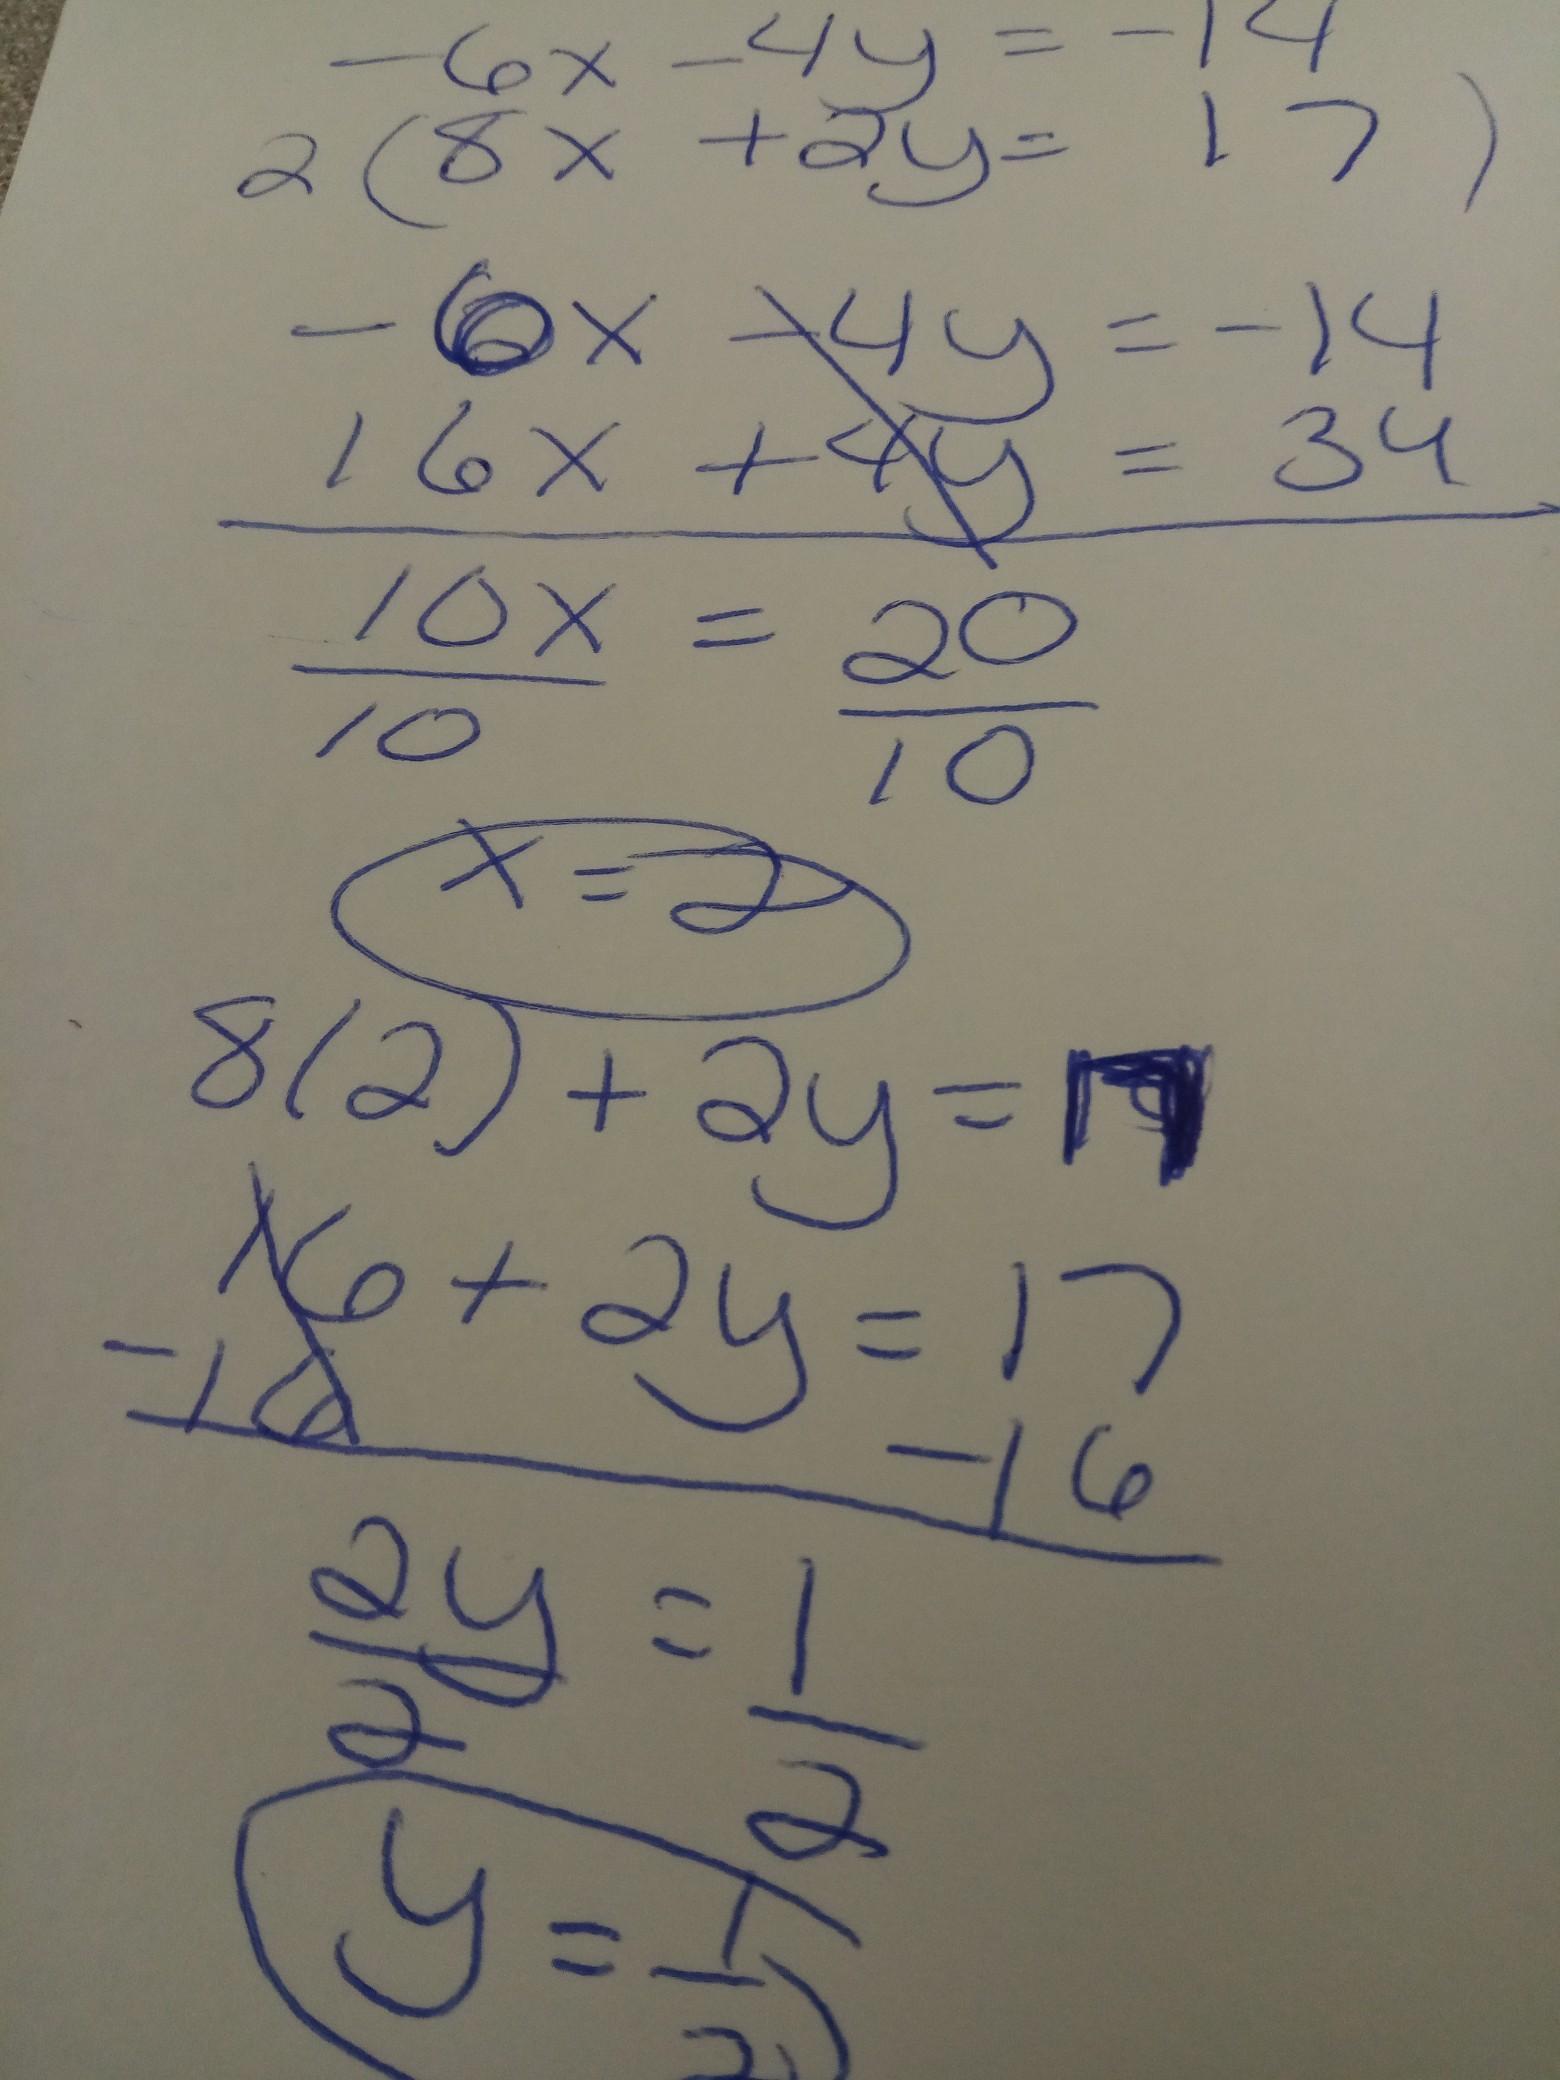 -6x -4y = -14
2(8x +2y= 17)
-6x -4y = -14
16x +4y = 34
10x = 20
10 10
x=2
8(2) + 2y = 17
16 + 2y = 17
-16 -16
2y = 1
2 2
y = 1
2